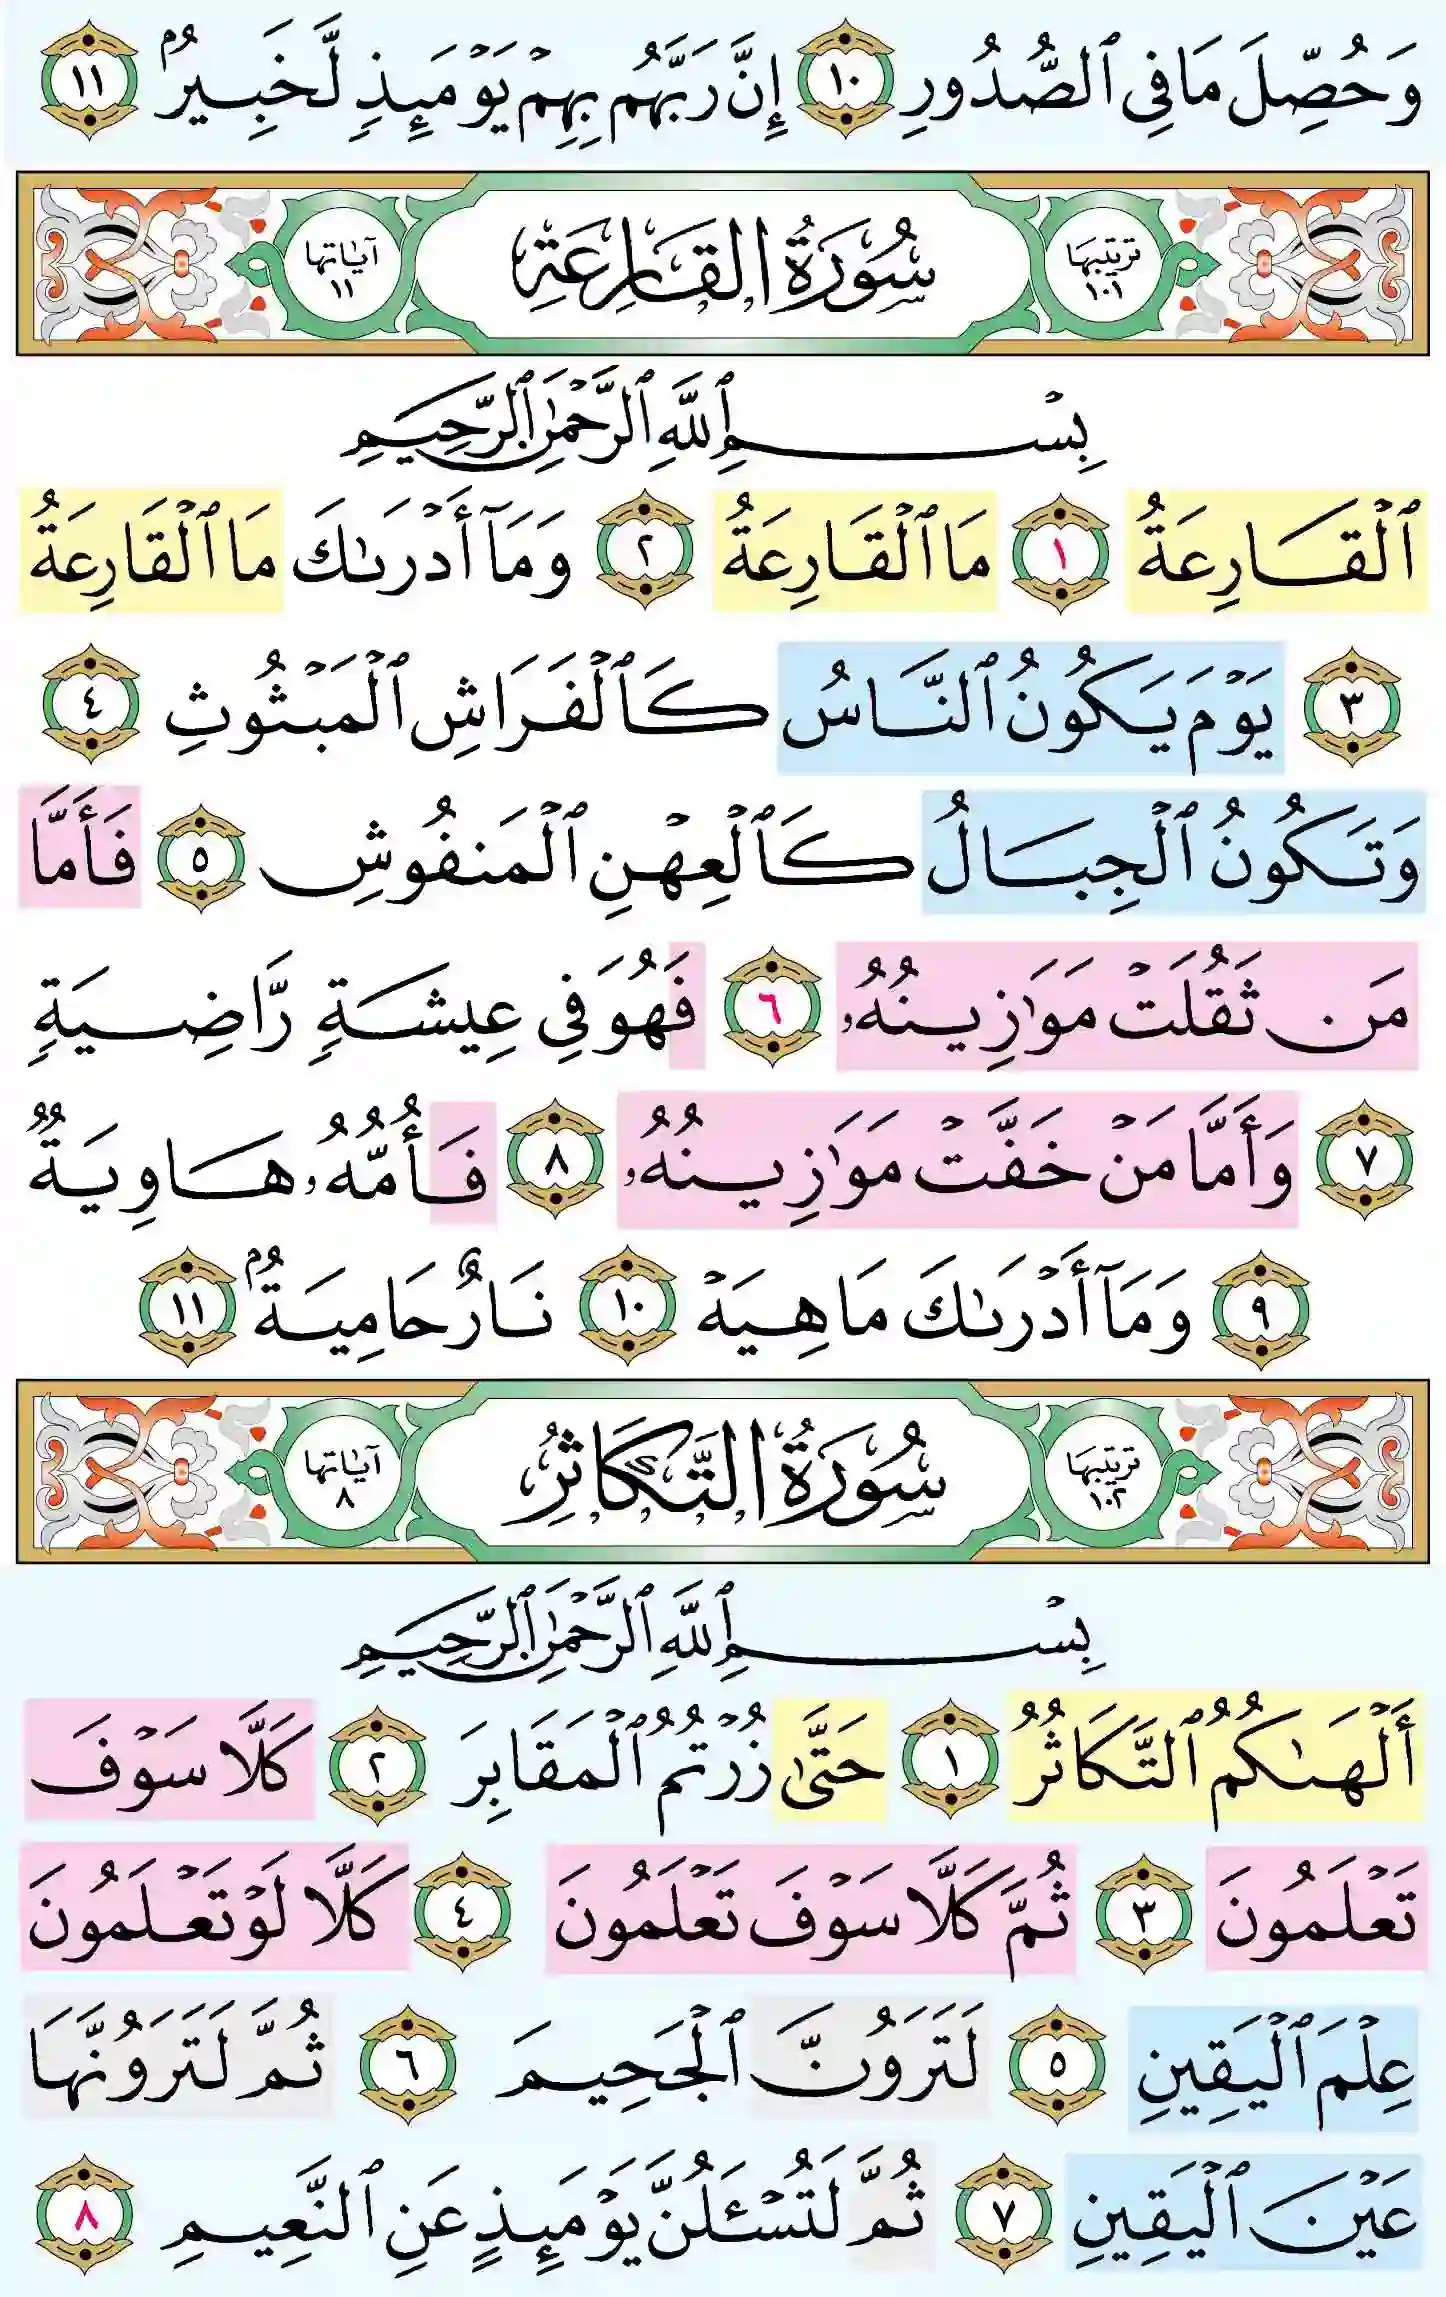 وَحُصِّلَ مَا فِى ٱلصُّدُورِ ١٠ إِنَّ رَبَّهُم بِهِمْ يَوْمَئِذٍ لَّخَبِيرٌۢ ١١
ترتيبها ١٠١ سُورَةُ القَارِعَةِ آياتها ١١
بِسْمِ ٱللَّهِ ٱلرَّحْمَٰنِ ٱلرَّحِيمِ
ٱلْقَارِعَةُ ١ مَا ٱلْقَارِعَةُ ٢ وَمَآ أَدْرَىٰكَ مَا ٱلْقَارِعَةُ
٣ يَوْمَ يَكُونُ ٱلنَّاسُ كَٱلْفَرَاشِ ٱلْمَبْثُوثِ ٤
وَتَكُونُ ٱلْجِبَالُ كَٱلْعِهْنِ ٱلْمَنفُوشِ ٥ فَأَمَّا
مَن ثَقُلَتْ مَوَٰزِينُهُۥ ٦ فَهُوَ فِى عِيشَةٍ رَّاضِيَةٍ
٧ وَأَمَّا مَنْ خَفَّتْ مَوَٰزِينُهُۥ ٨ فَأُمُّهُۥ هَاوِيَةٌ
٩ وَمَآ أَدْرَىٰكَ مَا هِيَهْ ١٠ نَارٌ حَامِيَةٌۢ ١١
ترتيبها ١٠٢ سُورَةُ التَّكَاثُرِ آياتها ٨
بِسْمِ ٱللَّهِ ٱلرَّحْمَٰنِ ٱلرَّحِيمِ
أَلْهَىٰكُمُ ٱلتَّكَاثُرُ ١ حَتَّىٰ زُرْتُمُ ٱلْمَقَابِرَ ٢ كَلَّا سَوْفَ
تَعْلَمُونَ ٣ ثُمَّ كَلَّا سَوْفَ تَعْلَمُونَ ٤ كَلَّا لَوْ تَعْلَمُونَ
عِلْمَ ٱلْيَقِينِ ٥ لَتَرَوُنَّ ٱلْجَحِيمَ ٦ ثُمَّ لَتَرَوُنَّهَا
عَيْنَ ٱلْيَقِينِ ٧ ثُمَّ لَتُسْـَٔلُنَّ يَوْمَئِذٍ عَنِ ٱلنَّعِيمِ ٨